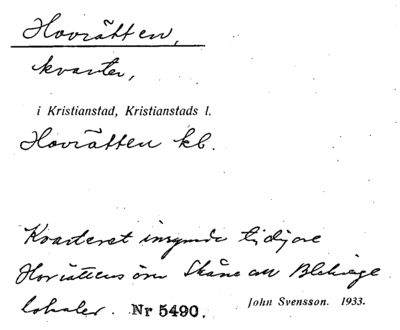 Hovrätten,
kvarter,
i Kristianstad, Kristianstads l.
Hovrätten kb.
Kvarteret inrymde tidigare
Hovrättens över Skåne och Blekinge
lokaler. Nr 5490.
John Svensson. 1933.